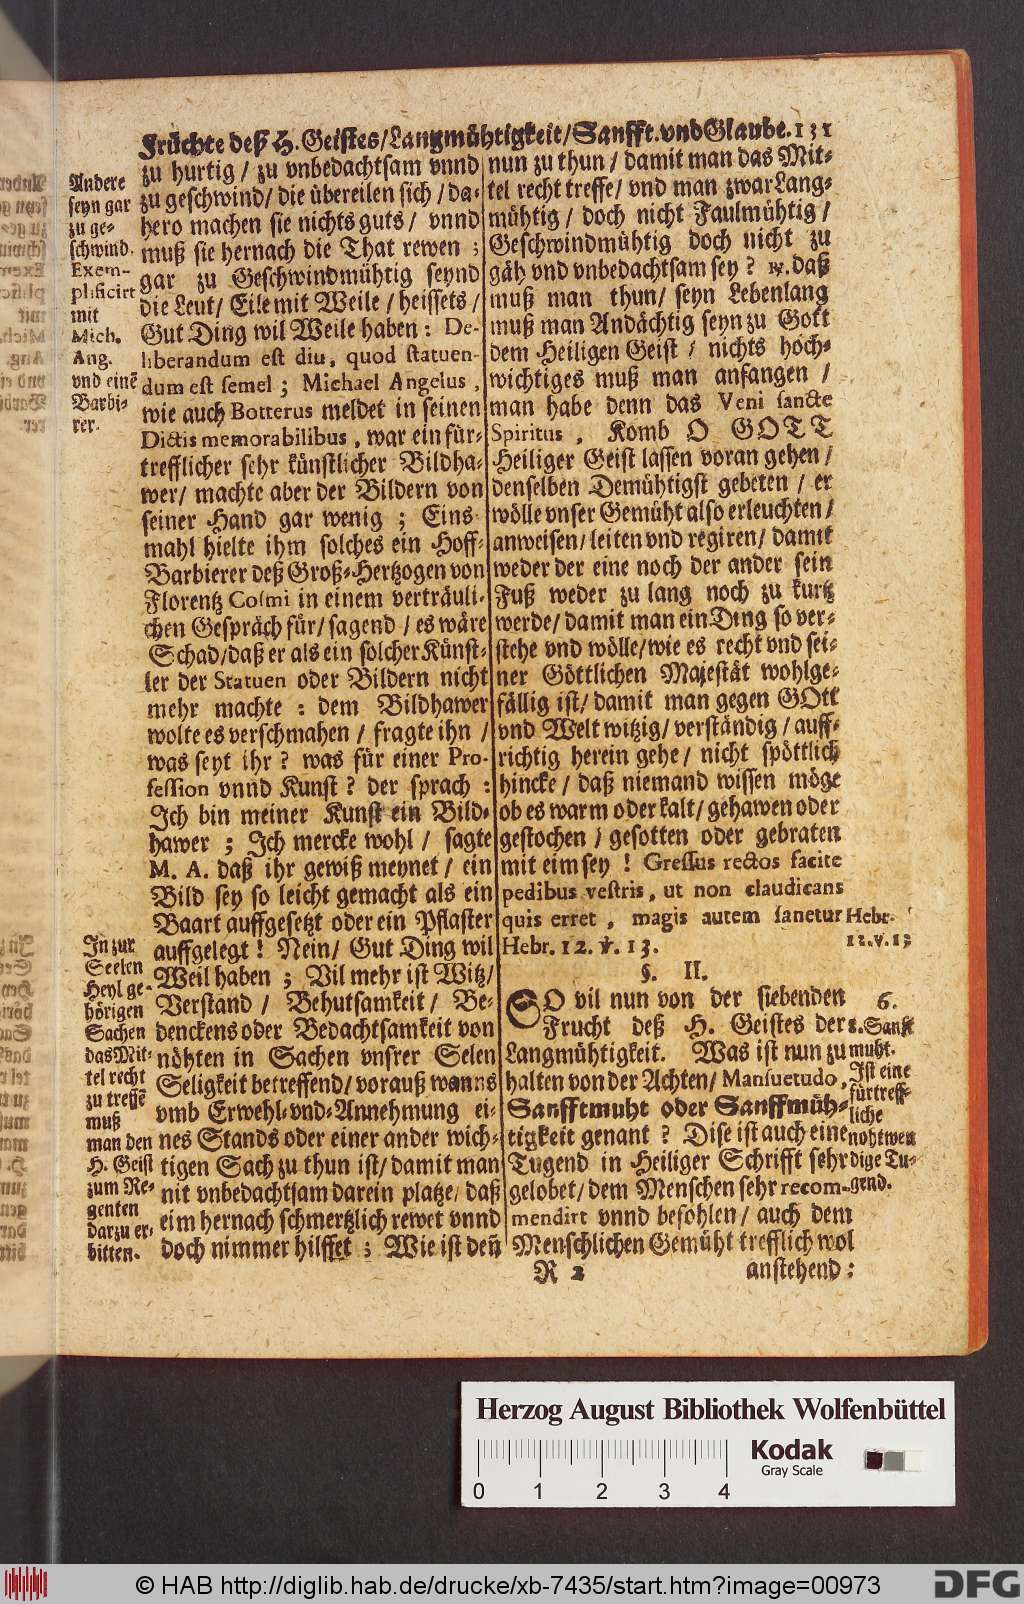 Früchte deß H. Geistes/Langmühtigkeit/Sanfft. vnd Glaube. 131
Andere
seyn gar
zu ge-
schwind.
Exem-
plificirt
mit
Mich.
Ang.
vnd einē
Barbi-
rer.
zu hurtig / zu vnbedachtsam vnnd
zu geschwind/ die übereilen sich / da-
hero machen sie nichts guts / vnnd
muß sie hernach die That rewen ;
gar zu Geschwindmühtig seynd
die Leut/ Eile mit Weile / heissets /
Gut Ding wil Weile haben : De-
liberandum est diu, quod statuen-
dum est semel ; Michael Angelus,
wie auch Botterus meldet in seinen
Dictis memorabilibus, war ein für-
trefflicher sehr künstlicher Bildha-
wer/ machte aber der Bildern von
seiner Hand gar wenig ; Eins-
mahl hielte ihm solches ein Hoff-
Barbierer deß Groß-Hertzogen von
Florentz Cosmi in einem verträuli-
chen Gespräch für/ sagend / es wäre
Schad/daß er als ein solcher Künst-
ler der Statuen oder Bildern nicht
mehr machte : dem Bildhawer
wolte es verschmahen / fragte ihn /
was seyt ihr ? was für einer Pro-
fession vnnd Kunst ? der sprach :
Ich bin meiner Kunst ein Bild-
hawer ; Ich mercke wohl / sagte
M. A. daß ihr gewiß meynet / ein
Bild sey so leicht gemacht als ein
Baart auffgesetzt oder ein Pflaster
auffgelegt ! Nein/ Gut Ding wil
Weil haben ; Vil mehr ist Witz/
Verstand / Behutsamkeit / Be-
denckens oder Bedachtsamkeit von
nöhten in Sachen vnsrer Selen
Seligkeit betreffend/ vorauß wanns
vmb Erwehl-vnd-Annehmung ei-
nes Stands oder einer ander wich-
tigen Sach zu thun ist/ damit man
nit vnbedachtsam darein platze/ daß
eim hernach schmertzlich rewet vnnd
doch nimmer hilffet ; Wie ist deñ
In zur
Seelen
Heyl ge-
hörigen
Sachen
das Mit-
tel recht
zu treffē
muß
man den
H. Geist
zum Re-
genten
darzu er-
bitten.
nun zu thun / damit man das Mit-
tel recht treffe/ vnd man zwar Lang-
mühtig / doch nicht Faulmühtig /
Geschwindmühtig doch nicht zu
gäh vnd vnbedachtsam sey ? ꝶ. daß
muß man thun/ seyn Lebenlang
muß man Andächtig seyn zu Gott
dem Heiligen Geist / nichts hoch-
wichtiges muß man anfangen /
man habe denn das Veni sancte
Spiritus, Komb O GOTT
Heiliger Geist lassen voran gehen /
denselben Demühtigst gebeten / er
wölle vnser Gemüht also erleuchten/
anweisen/ leiten vnd regiren/ damit
weder der eine noch der ander sein
Fuß weder zu lang noch zu kurtz
werde/ damit man ein Ding so ver-
stehe vnd wölle/wie es recht vnd sei-
ner Göttlichen Majestät wohlge-
fällig ist/ damit man gegen GOtt
vnd Welt witzig/ verständig / auff-
richtig herein gehe/ nicht spöttlich
hincke/ daß niemand wissen möge
ob es warm oder kalt/ gehawen oder
gestochen / gesotten oder gebraten
mit eim sey ! Gressus rectos facite
pedibus vestris, ut non claudicans
quis erret, magis autem sanetur
Hebr. 12. ℣. 13.
Hebr.
12.v.13
§. II.
SO vil nun von der siebenden
Frucht deß H. Geistes der
Langmühtigkeit. Was ist nun zu
halten von der Achten/ Mansuetudo,
Sanfftmuht oder Sanffmüh-
tigkeit genant ? Dise ist auch eine
Tugend in Heiliger Schrifft sehr
gelobet/ dem Menschen sehr recom-
mendirt vnnd befohlen/ auch dem
Menschlichen Gemüht trefflich wol
6.
8. Sanft
muht.
Ist eine
fürtreff-
liche
nohtwen
dige Tu-
gend.
R 2
anstehend :
Herzog August Bibliothek Wolfenbüttel
Kodak
Gray Scale
0 1 2 3 4
© HAB http://diglib.hab.de/drucke/xb-7435/start.htm?image=00973
DFG